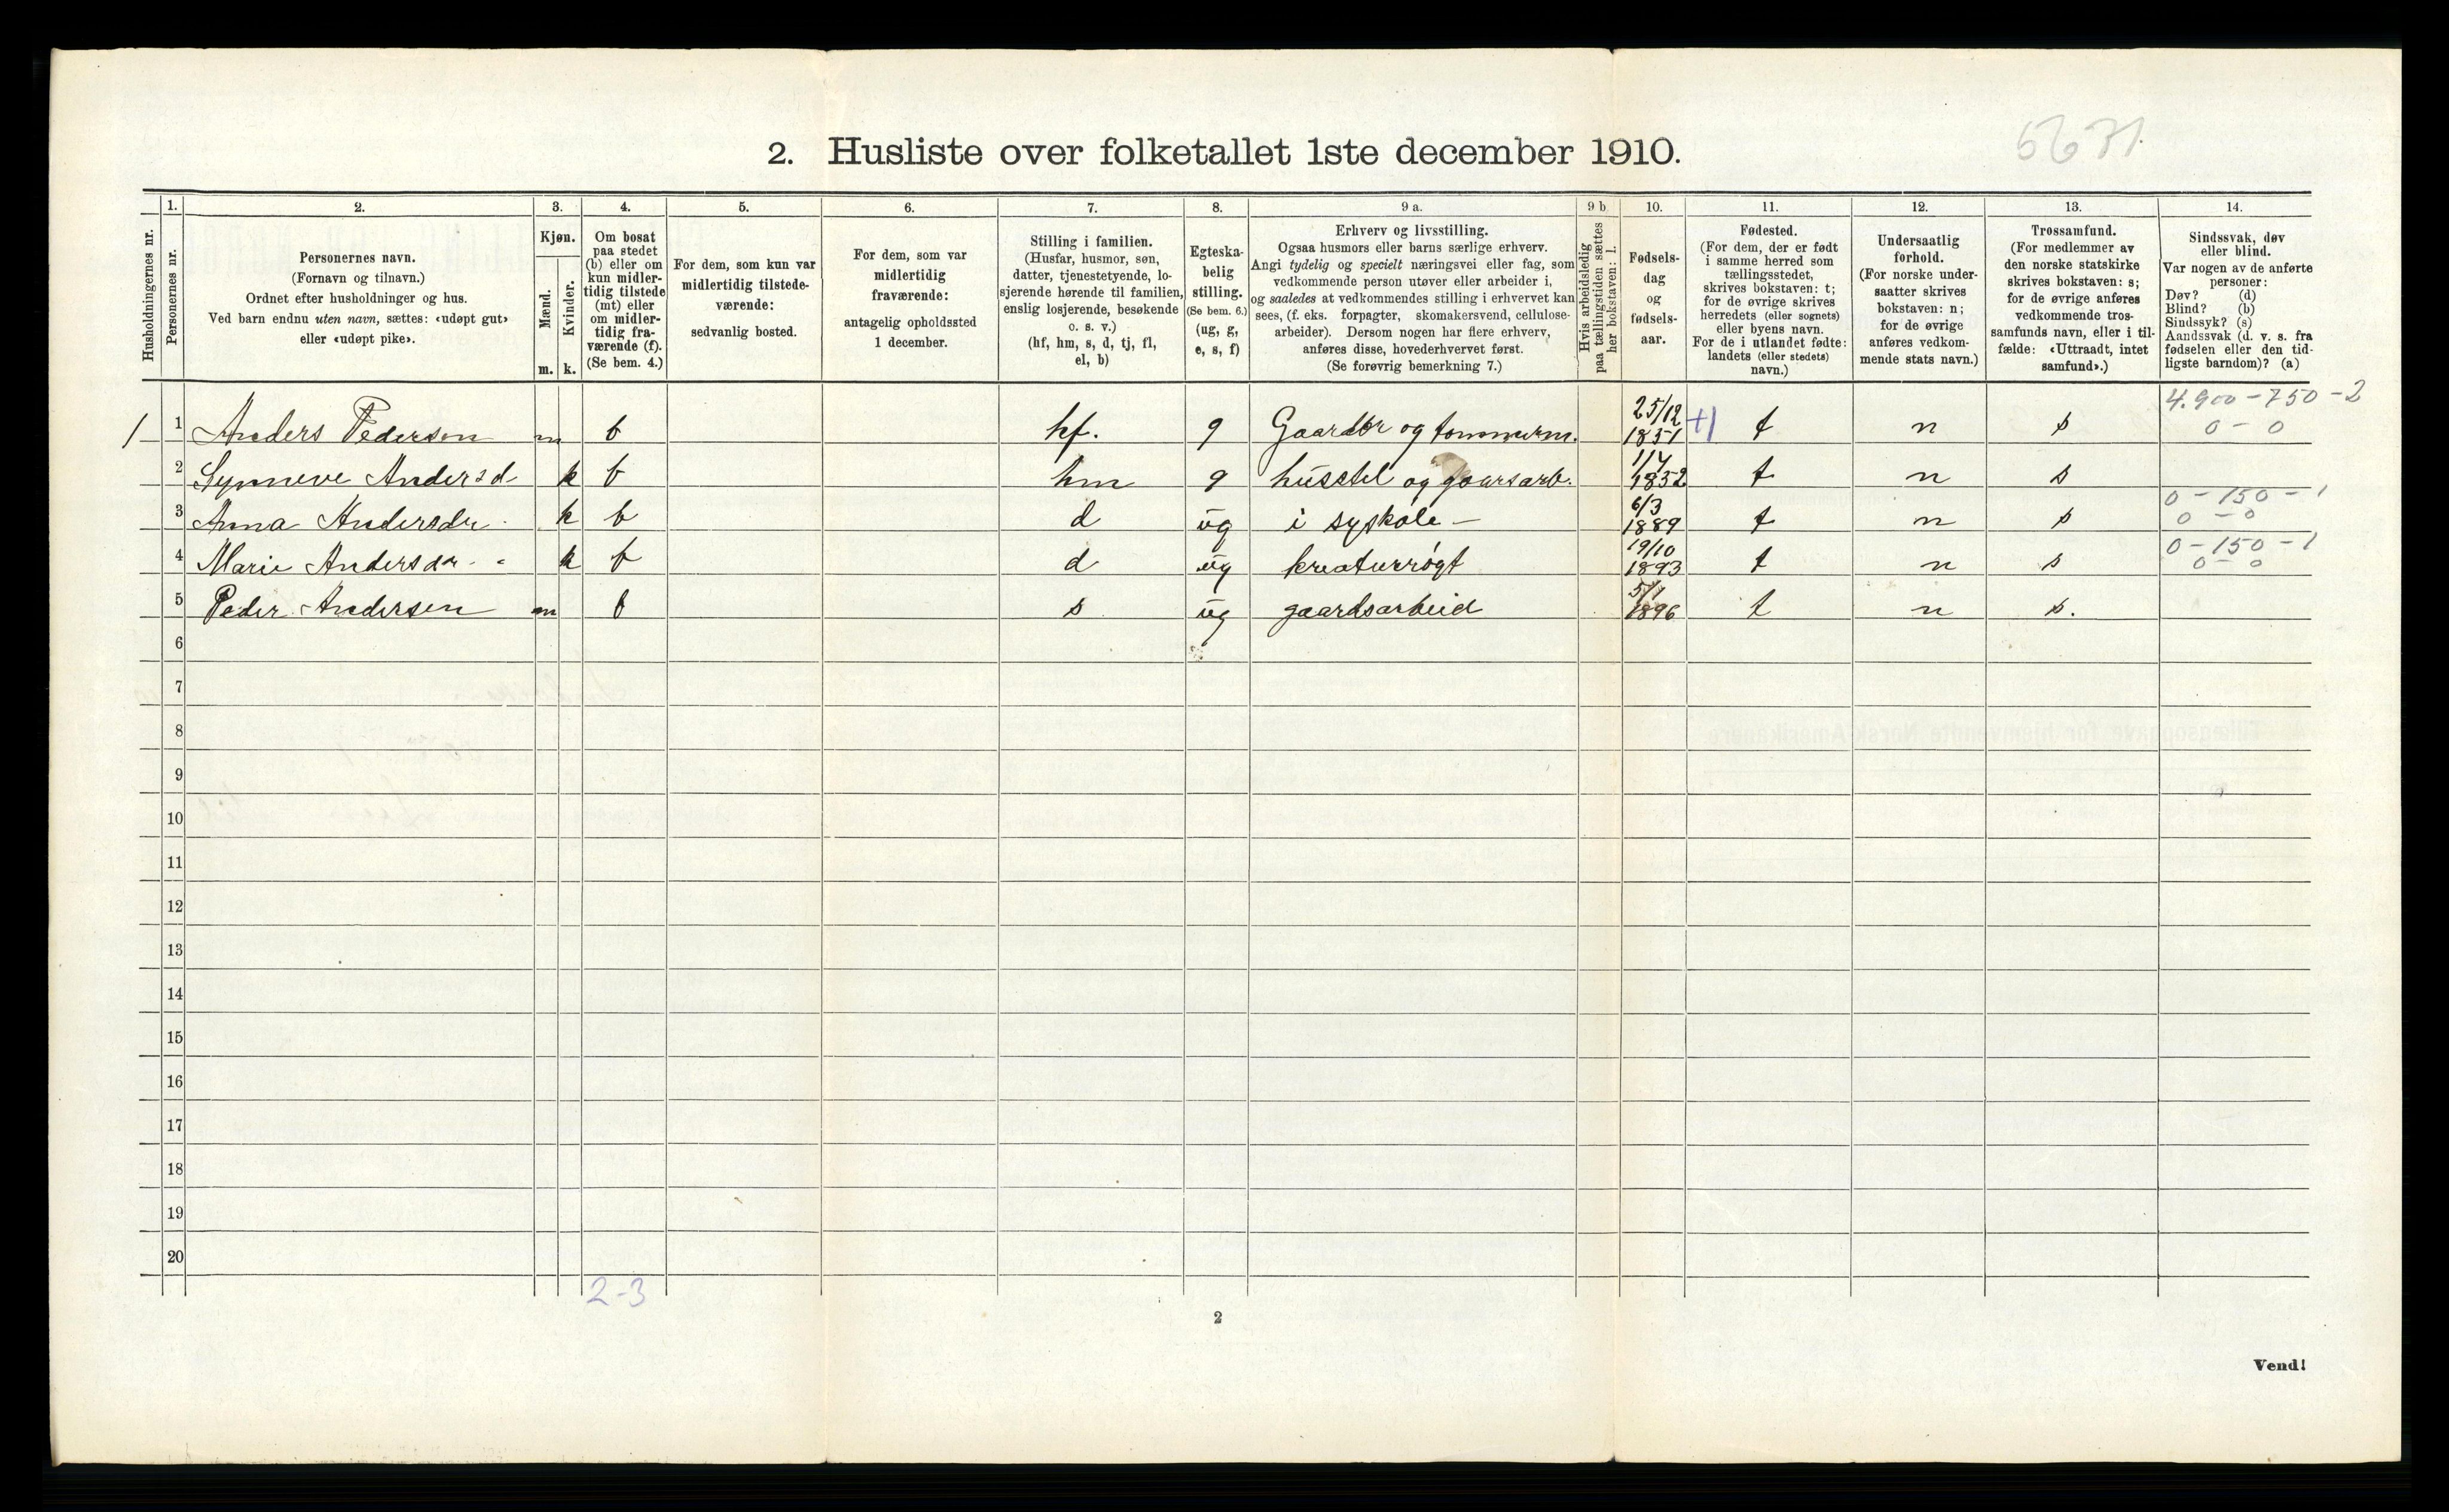 5671.
2. Husliste over folketallet 1ste december 1910.
Husholdningernes nr.
1.
Personernes nr.
2.
Personernes navn.
(Fornavn og tilnavn.)
Ordnet efter husholdninger og hus.
Ved barn endnu uten navn, sættes: «udøpt gut»
eller «udøpt pike».
3.
Kjøn.
Mænd.
Kvinder.
m. k.
4.
Om bosat
paa stedet
(b) eller om
kun midler-
tidig tilstede
(mt) eller
om midler-
tidig fra-
værende (f).
(Se bem. 4.)
5.
For dem, som kun var
midlertidig tilstede-
værende:
sedvanlig bosted.
6.
For dem, som var
midlertidig
fraværende:
antagelig opholdssted
1 december.
7.
Stilling i familien.
(Husfar, husmor, søn,
datter, tjenestetyende, lo-
sjerende hørende til familien,
enslig losjerende, besøkende
o. s. v.)
(hf, hm, s, d, tj, fl,
el, b)
8.
Egteska-
belig
stilling.
(Se bem. 6.)
(ug, g,
e, s, f)
9 a.
Erhverv og livsstilling.
Ogsaa husmors eller barns særlige erhverv.
Angi tydelig og specielt næringsvei eller fag, som
vedkommende person utøver eller arbeider i,
og saaledes at vedkommendes stilling i erhvervet kan
sees, (f. eks. forpagter, skomakersvend, cellulose-
arbeider). Dersom nogen har flere erhverv,
anføres disse, hovederhvervet først.
(Se forøvrig bemerkning 7.)
9 b
Hvis arbeidsledig
paa tællingstiden sættes
her bokstaven: l.
10.
Fødsels-
dag
og
fødsels-
aar.
11.
Fødested.
(For dem, der er født
i samme herred som
tællingsstedet,
skrives bokstaven: t;
for de øvrige skrives
herredets (eller sognets)
eller byens navn.
For de i utlandet fødte:
landets (eller stedets)
navn.)
12.
Undersaatlig
forhold.
(For norske under-
saatter skrives
bokstaven: n;
for de øvrige
anføres vedkom-
mende stats navn.)
13.
Trossamfund.
(For medlemmer av
den norske statskirke
skrives bokstaven: s;
for de øvrige anføres
vedkommende tros-
samfunds navn, eller i til-
fælde: «Uttraadt, intet
samfund».)
14.
Sindssvak, døv
eller blind.
Var nogen av de anførte
personer:
Døv? (d)
Blind? (b)
Sindssyk? (s)
Aandssvak (d. v. s. fra
fødselen eller den tid-
ligste barndom)? (a)
4.900 - 750 - 2
1 1 Anders Pedersen m b hf. g Gaardbr og tømmerm. 25/12 1851 t n s 0 - 0
2 Synneve Andersd k b hm g husstel og gaarsarb. 1/4 1852 t n s
0 - 150 - 1
3 Anna Andersdr. k b d ug i syskole - 6/3 1889 t n s 0 - 0
0 - 150 - 1
4 Marie Andersdr. k b d ug kreaturrøgt 19/10 1893 t n s 0 - 0
5 Peder Andersen m b s ug gaardsarbeid 5/1 1896 t n s.
6
7
8
9
10
11
12
13
14
15
16
17
18
19
20
2-3
2
Vend!